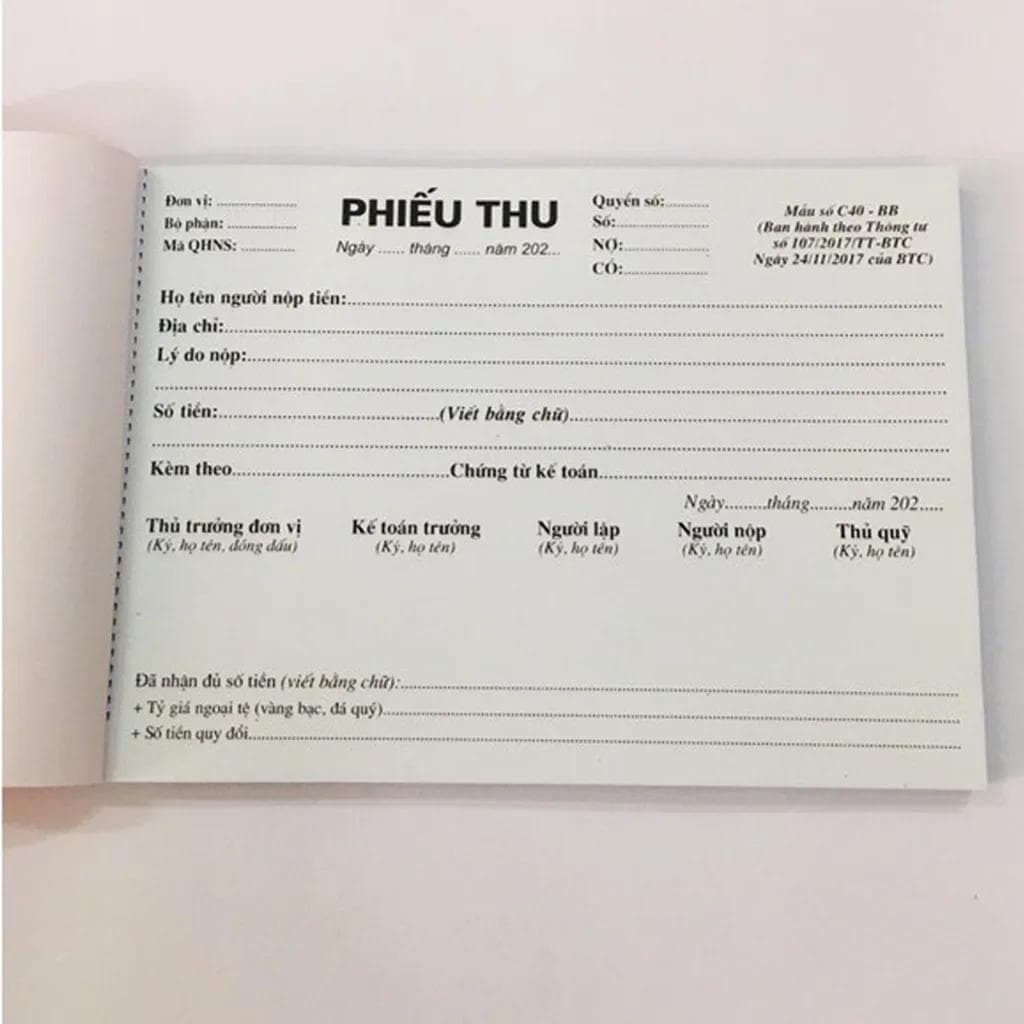 Đơn vị:....................
PHIẾU THU
Quyển số:...........
Mẫu số C40 - BB
Bộ phận: .................
Số:.......................
(Ban hành theo Thông tư
Mã QHNS: .............
Ngày ...... tháng ...... năm 202...
NỢ:.....................
số 107/2017/TT-BTC
CÓ:.....................
Ngày 24/11/2017 của BTC)
Họ tên người nộp tiền:....................
Địa chỉ:....................
Lý do nộp:....................
....................
Số tiền:....................(Viết bằng chữ)....................
....................
Kèm theo....................Chứng từ kế toán....................
Ngày.........tháng.........năm 202.....
Thủ trưởng đơn vị Kế toán trưởng Người lập Người nộp Thủ quỹ
(Ký, họ tên, đóng dấu) (Ký, họ tên) (Ký, họ tên) (Ký, họ tên) (Ký, họ tên)
Đã nhận đủ số tiền (viết bằng chữ):....................
+ Tỷ giá ngoại tệ (vàng bạc, đá quý)....................
+ Số tiền quy đổi....................